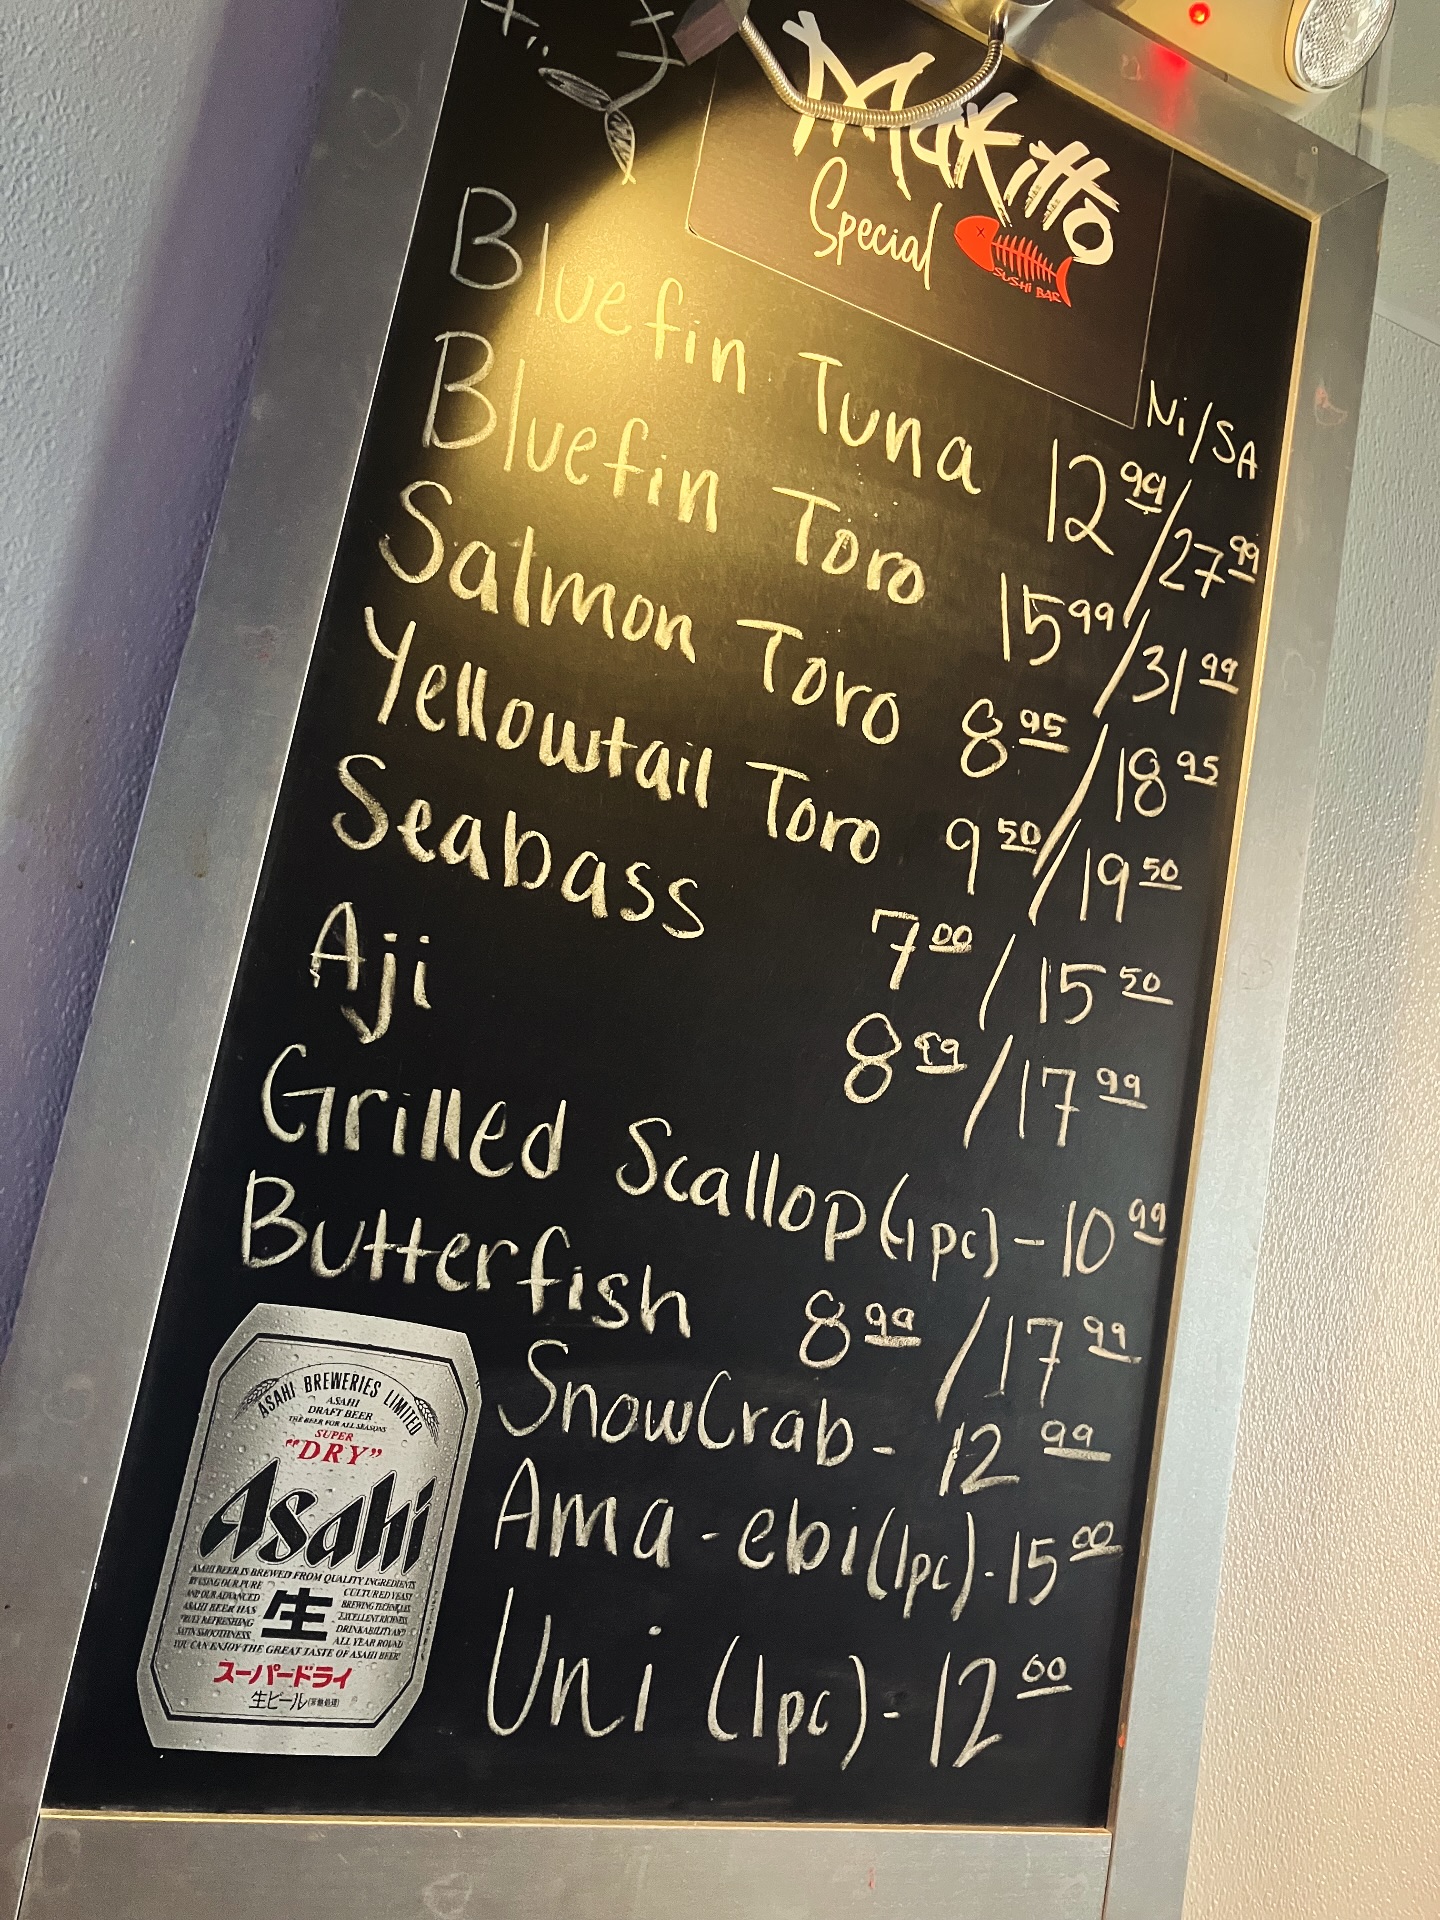 Makitto
Special
SUSHI BAR
Ni/SA
Bluefin Tuna 12.99/27.99
Bluefin Toro 15.99/31.99
Salmon Toro 8.95/18.95
Yellowtail Toro 9.50/19.50
Seabass 7.00/15.50
Aji 8.99/17.99
Grilled Scallop (1pc) - 10.99
Butterfish 8.99/17.99
SnowCrab - 12.99
Ama-ebi (1pc) - 15.00
Uni (1pc) - 12.00
ASAHI BREWERIES LIMITED
ASAHI
DRAFT BEER
THE BEER FOR ALL SEASONS
SUPER
"DRY"
Asahi
ASAHI BEER IS BREWED FROM QUALITY INGREDIENTS
BY USING OUR PURE CULTURED YEAST
AND OUR ADVANCED BREWING TECHNIQUES.
ASAHI BEER HAS EXCELLENT RICHNESS,
TRULY REFRESHING DRINKABILITY AND
SATIN SMOOTHNESS ALL YEAR ROUND
YOU CAN ENJOY THE GREAT TASTE OF ASAHI BEER!
生
スーパードライ
生ビール